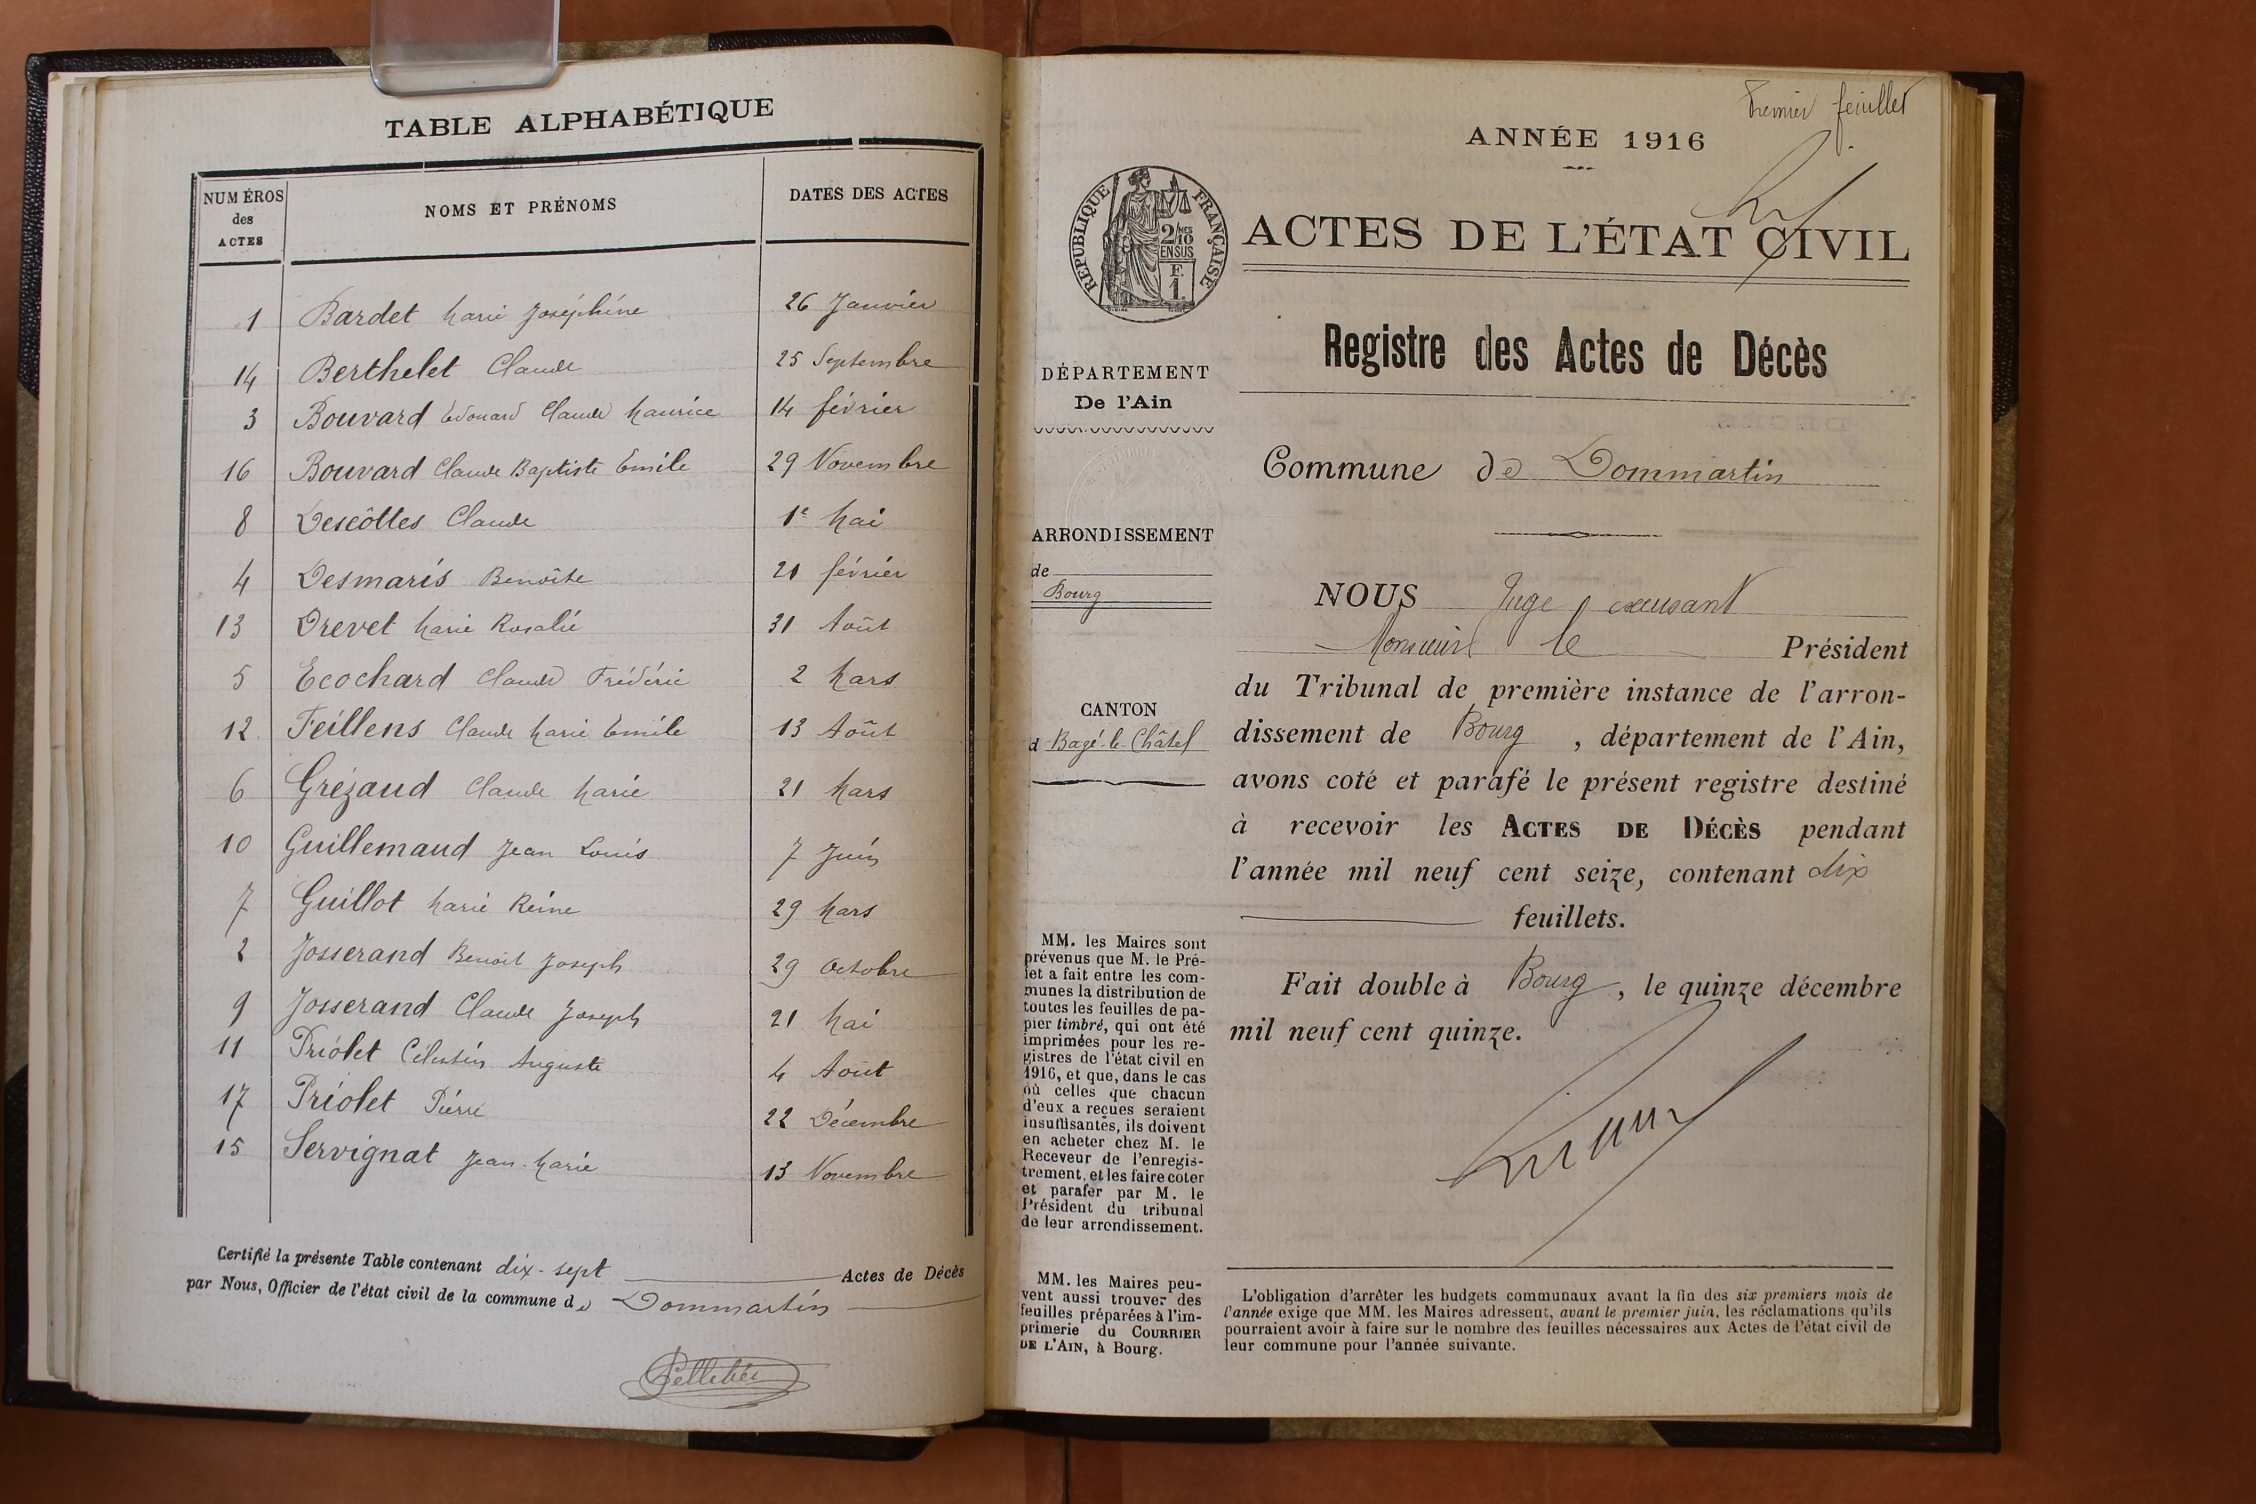 TABLE ALPHABÉTIQUE
NUMÉROS des ACTES NOMS ET PRÉNOMS DATES DES ACTES
1 Bardet Marie Joséphine 26 Janvier
14 Berthelet Claude 25 Septembre
3 Bouvard Edouard Claude Maurice 14 février
16 Bouvard Claude Baptiste Emile 29 Novembre
8 Descôttes Claude 1e Mai
4 Desmaris Benoîte 21 février
13 Drevet Marie Rosalie 31 Août
5 Ecochard Claude Frédéric 2 Mars
12 Feillens Claude Marie Emile 13 Août
6 Grézaud Claude Marie 21 Mars
10 Guillemaud Jean Louis 7 Juin
7 Guillot Marie Reine 29 Mars
2 Josserand Benoit Joseph 29 Octobre
9 Josserand Claude Joseph 21 Mai
11 Priolet Célestin Auguste 4 Août
17 Priolet Pierre 22 Décembre
15 Servignat Jean-Marie 13 Novembre
Certifié la présente Table contenant dix-sept Actes de Décès
par Nous, Officier de l'état civil de la commune de Dommartin
Premier feuillet
ANNÉE 1916
RÉPUBLIQUE FRANÇAISE
2/10 MES
EN SUS
F.
1.
ACTES DE L'ÉTAT CIVIL
Registre des Actes de Décès
DÉPARTEMENT
De l'Ain
Commune de Dommartin
ARRONDISSEMENT
de
Bourg
CANTON
d Bagé-le-Châtel
NOUS Juge excusant
Monsieur le Président
du Tribunal de première instance de l'arron-
dissement de Bourg, département de l'Ain,
avons coté et parafé le présent registre destiné
à recevoir les ACTES DE DÉCÈS pendant
l'année mil neuf cent seize, contenant dix
feuillets.
Fait double à Bourg, le quinze décembre
mil neuf cent quinze.
MM. les Maires sont
prévenus que M. le Pré-
fet a fait entre les com-
munes la distribution de
toutes les feuilles de pa-
pier timbré, qui ont été
imprimées pour les re-
gistres de l'état civil en
1916, et que, dans le cas
où celles que chacun
d'eux a reçues seraient
insuffisantes, ils doivent
en acheter chez M. le
Receveur de l'enregis-
trement, et les faire coter
et parafer par M. le
Président du tribunal
de leur arrondissement.
MM. les Maires peu-
vent aussi trouver des
feuilles préparées à l'im-
primerie du COURRIER
DE L'AIN, à Bourg.
L'obligation d'arrêter les budgets communaux avant la fin des six premiers mois de
l'année exige que MM. les Maires adressent, avant le premier juin, les réclamations qu'ils
pourraient avoir à faire sur le nombre des feuilles nécessaires aux Actes de l'état civil de
leur commune pour l'année suivante.